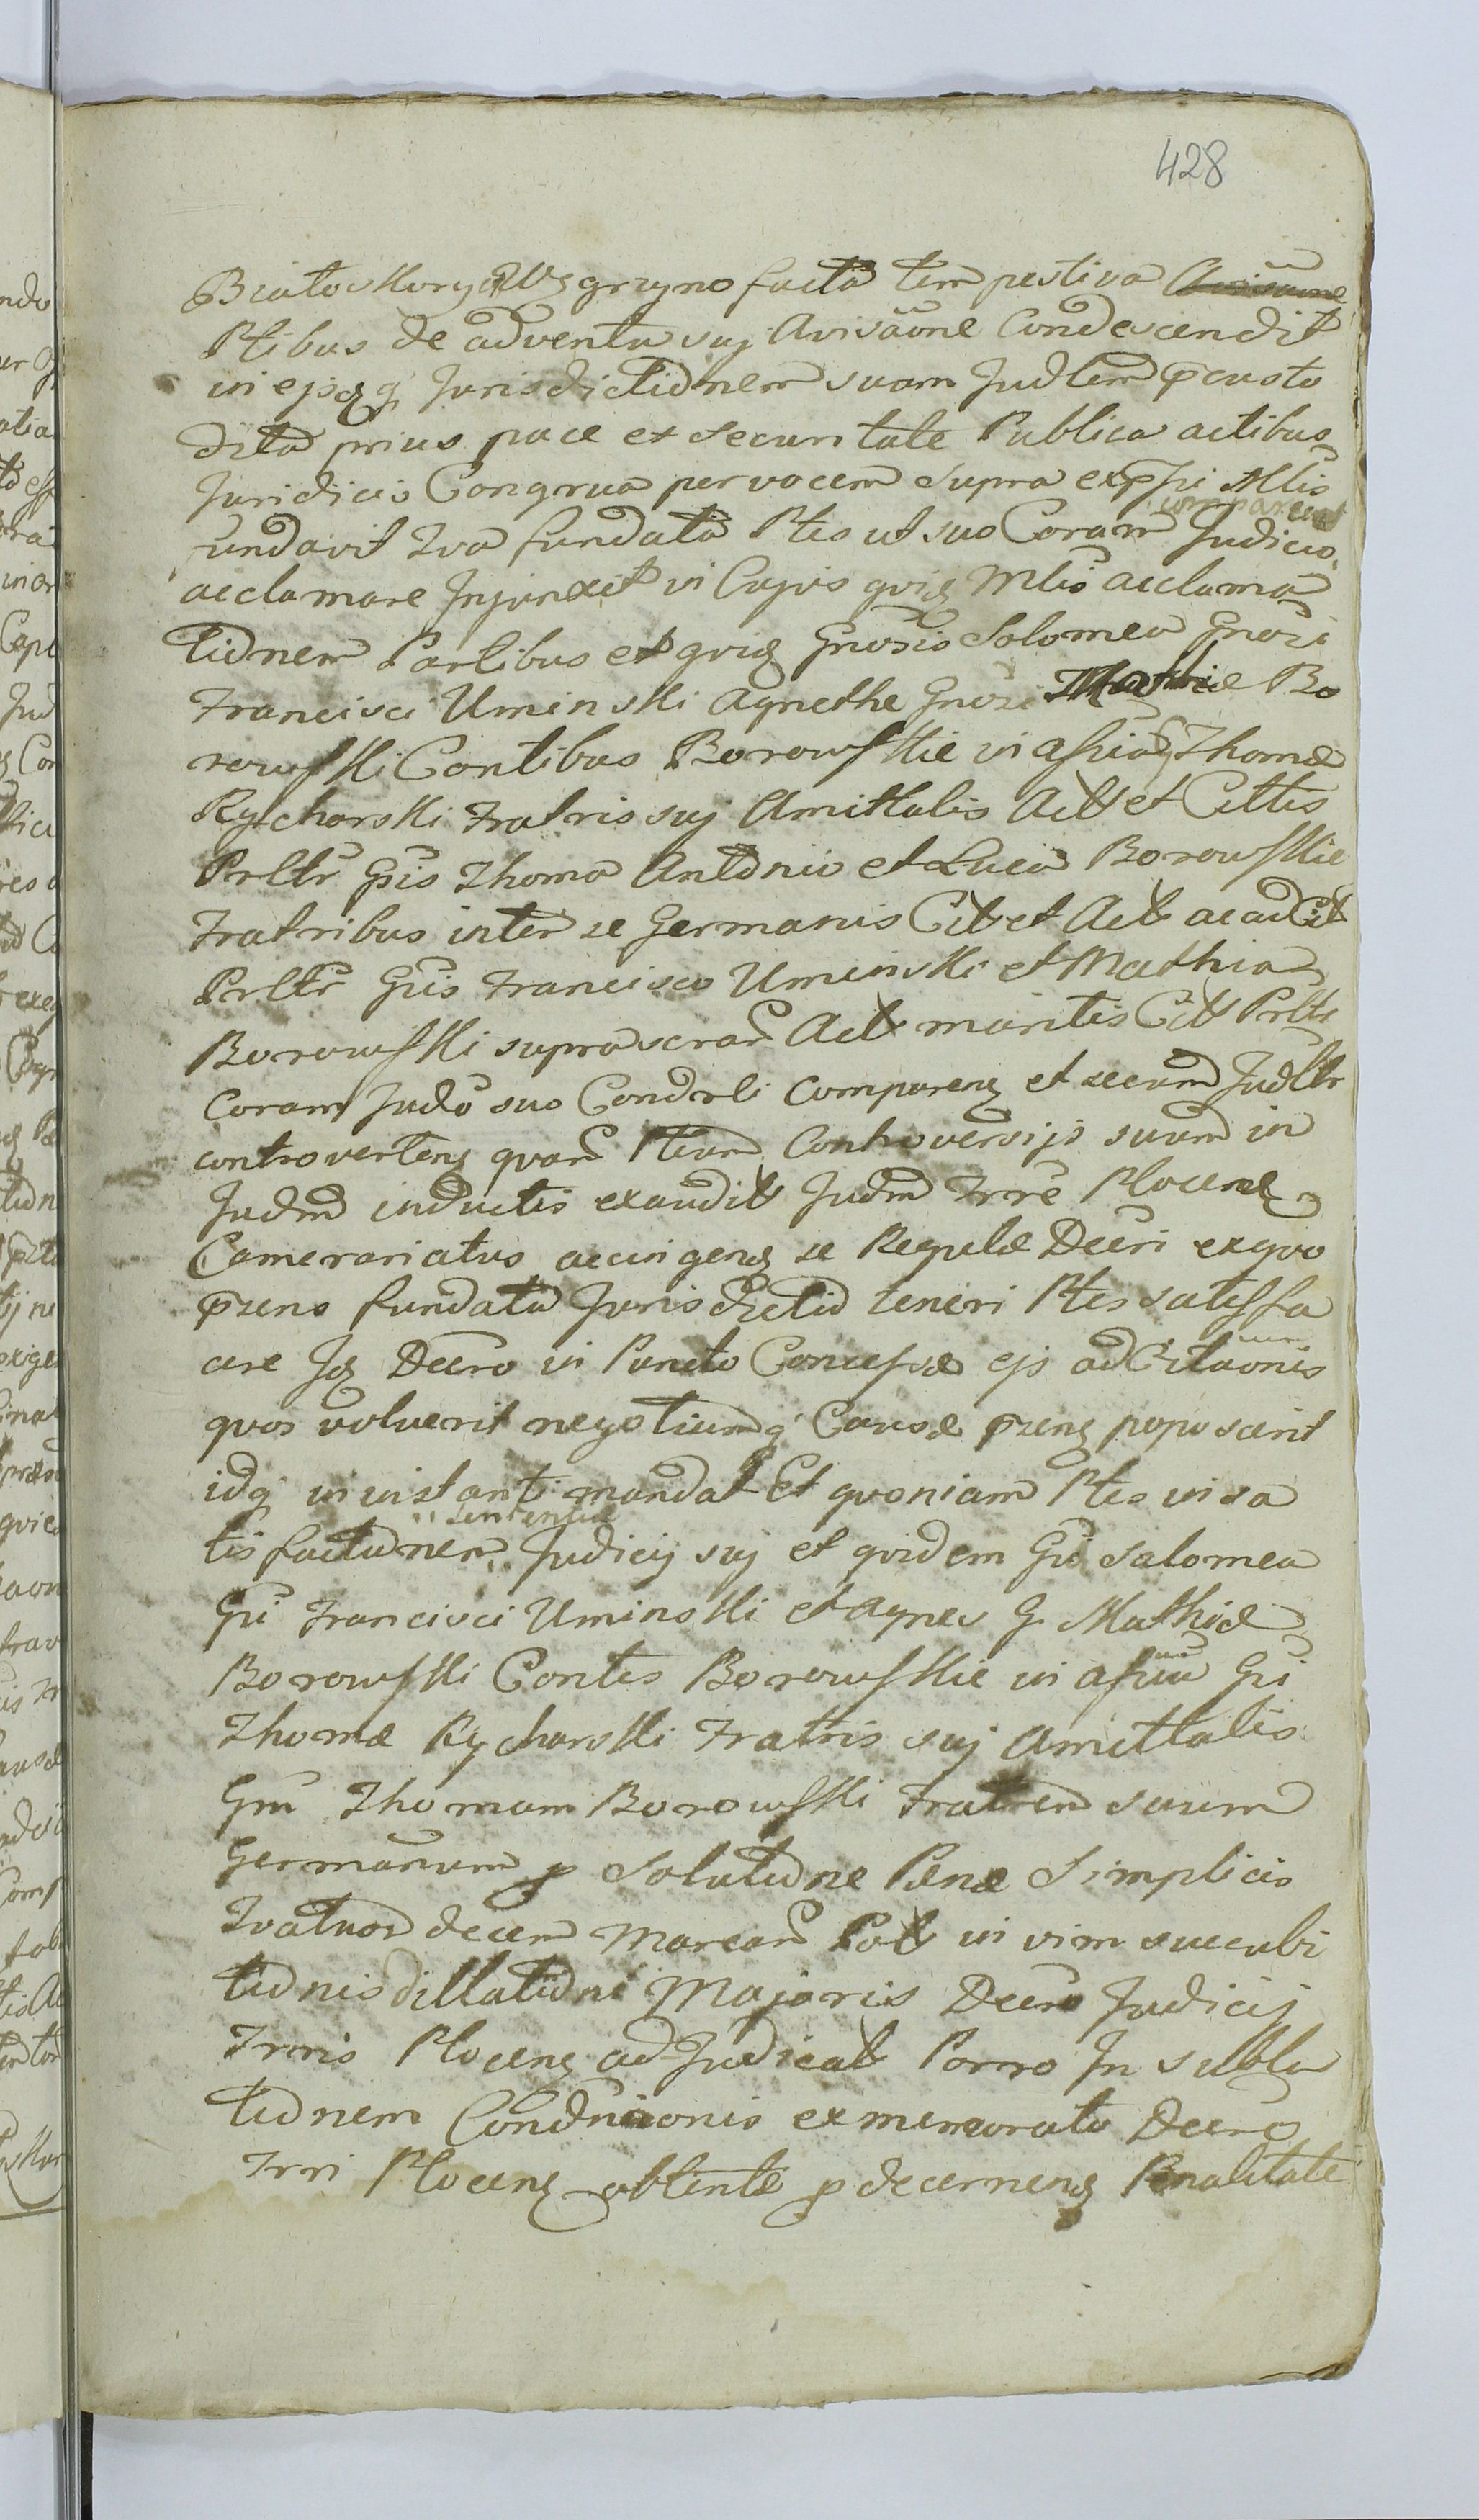 428
facta tempestiva
Ptibus de adventu suj Avisaōne Condescendit
in ejsq q Jurisdictionem suam Judlem p̄custo
dita prius pace et securitate Publica actibus
Juridicis Congrua per vocem supra exp̄ssi Mlis
comparend
fundavit Qva fundata Ptes ut suo Coram Judicio
acclamare Injunxit in Cujus quiq Mlis acclama
tionem Partibus et quiq Gnosis Solomea Gnosi
Francisci Uminski Agnethe Gnosi Mathiæ Bo
rowski Contibus Borowskie in assia Thomæ
Rycharski Fratris suj Amittalis Act et Cittis
Prltr Gsis Thoma Antonio et Luca Borowskie
Fratribus inter se Germanis Cit et Act ac ad Cit
Prltr Gsis Francisco Uminski et Mathia
Borowski suprascrar Act maritis Cit Prltr
Coram Judo suo Condrli Comparenq et secum Judltr
controvertenq quar Ptium Controversijs suum in
Judm inductis exaudit Judm Trre Plocenq
Camerariatus accingenq se Regulæ Decri ex quo
p̄sens fundata Jurisdictio teneri Ptes satisfa
cere Jq Decro in Puncto Concessæ ejs adCitaonis
quos voluerit negotiumq Causæ p̄senq poposcerit
idq in instanti mandat Et quoniam Ptes in sa
sententiæ
tisfactionem Judicij suj et quidem Gsa Salomea
Gsi Francisci Uminski et Agnes G. Mathiæ
Borowski Contes Borowskie in assia Gsi
Thomæ Rycharski Fratris suj Amittalis
Gm Thomam Borowski Fratrem suum
Germanum p solutione Pænæ Simplicis
Qvatuordecem Marcar Pol in vim succubi
tionis dillationi Majoris Decro Judicij
Trris Plocenq adJudicat Porro In subla
tionem Condnaonis ex memorato Decro
Trri Plocenq obtentæ p decernenq Pænalitate